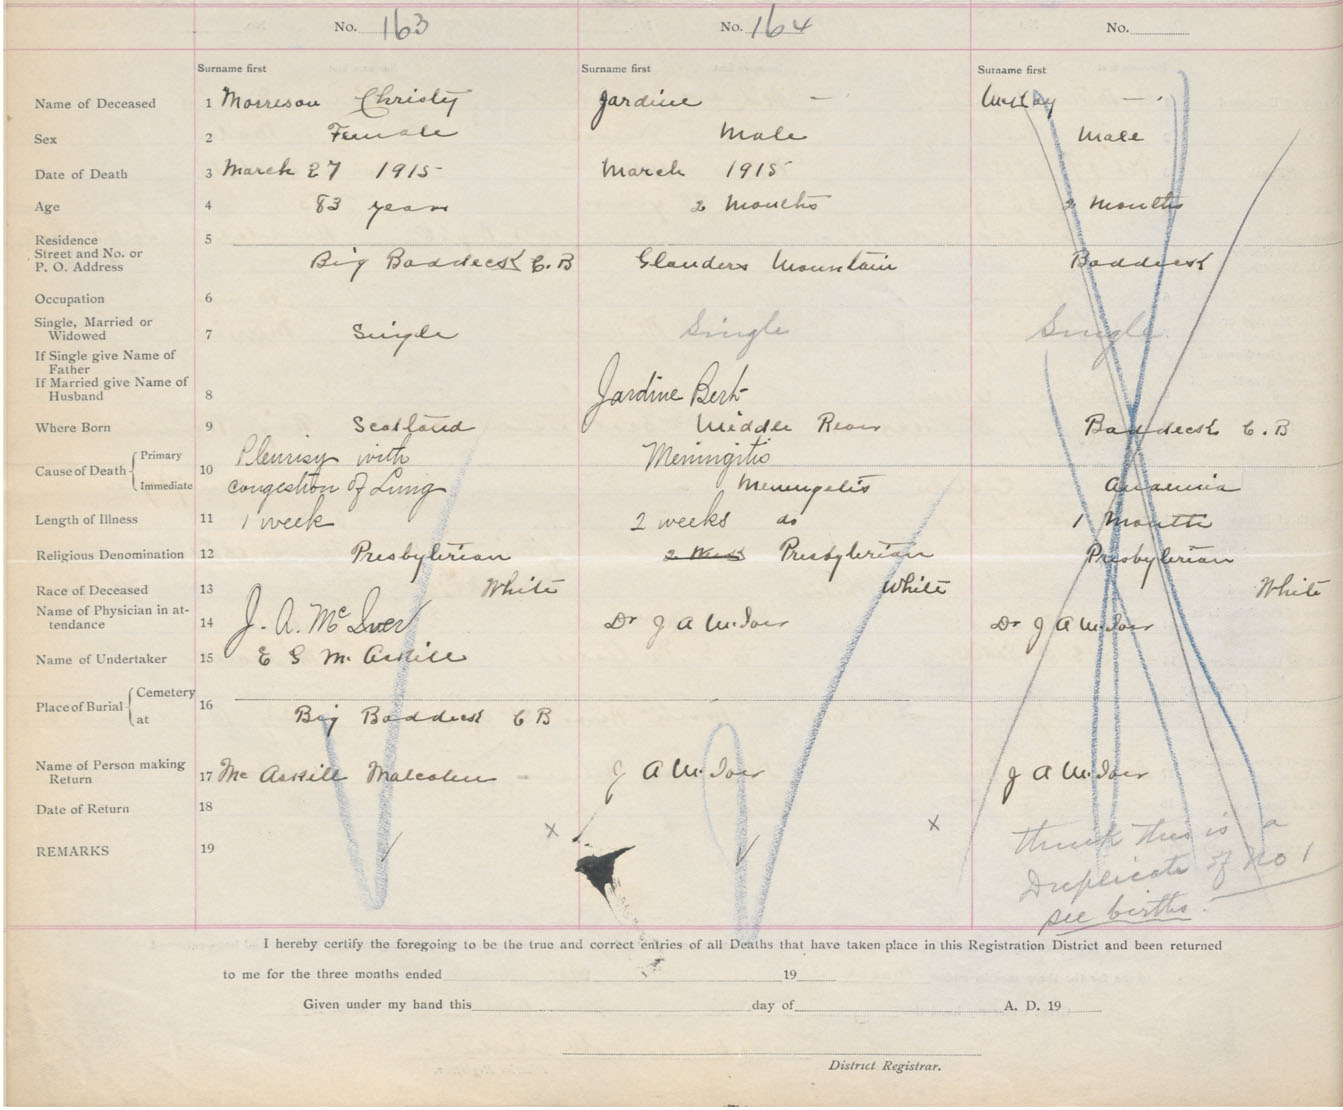 No. 163 No. 164 No.
Surname first Surname first Surname first
Name of Deceased 1 Morrison Christy Jardine — McKay —
Sex 2 Female Male Male
Date of Death 3 March 27 1915 March 1915
Age 4 83 years 2 Months 2 Months
Residence 5
Street and No. or
P. O. Address Big Baddeck C. B Glanders Mountain Baddeck
Occupation 6
Single, Married or
Widowed 7 Single Single Single
If Single give Name of
Father
If Married give Name of
Husband 8 Jardine Bert
Where Born 9 Scotland Middle River Baddeck C. B
Cause of Death Primary 10 Pleurisy with Meningitis
Immediate congestion of Lung Menengetis Anaemia
Length of Illness 11 1 week 2 weeks do 1 Month
Religious Denomination 12 Presbyterian 2 Week Presbyterian Presbyterian
Race of Deceased 13 White White White
Name of Physician in at-
tendance 14 J. A. McIver Dr J A McIver Dr J A McIver
Name of Undertaker 15 E G McAskill
Place of Burial Cemetery 16
at Big Baddeck C B
Name of Person making
Return 17 McAskill Malcolm - J A McIver J A McIver
Date of Return 18
REMARKS 19 x x think this is a
Duplicate of No 1
see births.
I hereby certify the foregoing to be the true and correct entries of all Deaths that have taken place in this Registration District and been returned
to me for the three months ended 19
Given under my hand this day of A. D. 19
District Registrar.